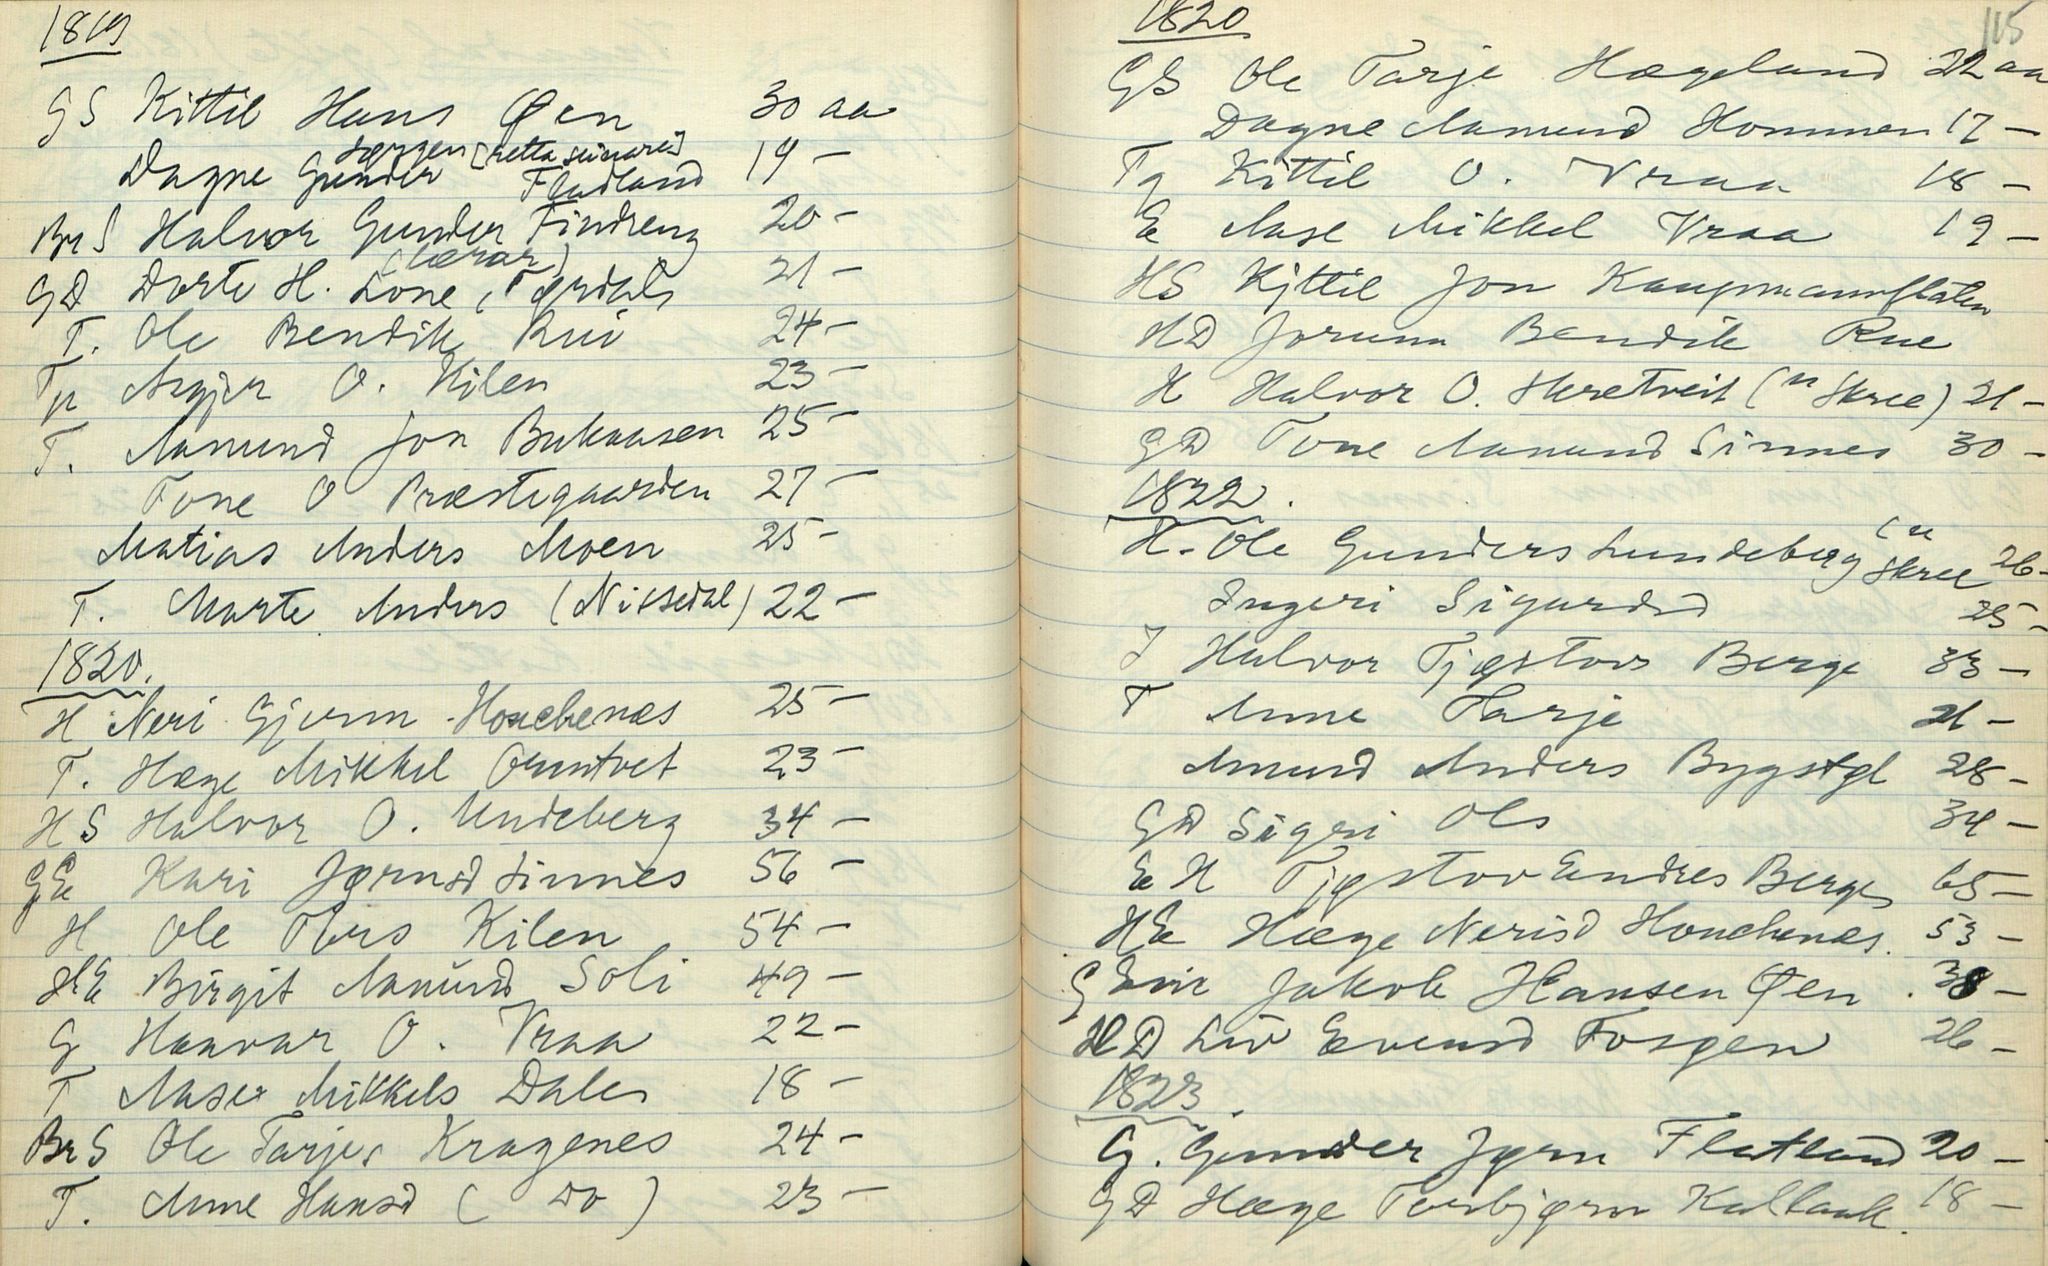 1819
GS Kittil Hans Øen 30 aa
Jørgen [retta seinare]
Dagne Gunder Fladland 19 –
Br S Halvor Gunder Tindreng 20 –
(Lærar)
GD Dorte H. Lone, Tørdals 21 –
T. Ole Bendik Rui 24 –
Tp Asgjer O. Kilen 23 –
T. Aamund Jon Bukaasen 25 –
Tone O Præstegaarden 27 –
Matias Anders Moen 25 –
T. Marte Anders (Nissedal) 22 –
1820.
H Neri Gjerm Honchenæs 25 –
T. Hæge Mikkel Gruntvet 23 –
HS Halvor O. Lundeberg 34 –
GE Kari Jørnsd Sinnes 56 –
H Ole Olvrs Kilen 54 –
HE Birgit Aamund Soli 49 –
G Haavar O. Vraa 22 –
T Aaser Mikkels Dalen 18 –
Br S Ole Tarjes Kragenes 24 –
T. Anne Hansd ( Do ) 23 –
1820 115
GS Ole Tarje Hægeland 22 aa
Dagne Aamund Hommen 17 –
Tg Kittil O. Vraa 18 –
E Aase Mikkel Vraa 19 –
HS Kjttil Jon Kaupmannflaten
HD Jorunn Bendik Rue
H Halvor O. Skretveit (u Skree) 21 –
GD Tone Aamund Sinnes 30 –
1822.
H. Ole Gunders Lundeberg (u Skree 26 –
Ingeri Sigurdsd 25 –
I Halvor Tjøstovs Berge 33 –
T Anne Tarje 21 –
Amund Anders Bygstøl 28 –
GD Sigri Ols 34 –
E H Tjøstov Endres Berge 65 –
HE Hæge Nerisd Honchenæs. 53 –
G Em Jakob Hansen Øen . 38 –
HD Liv Evensd Fosgen 26 –
1823.
G. Gunder Jørn Flatland 20 –
GD Hæge Torbjørn Kallaak. 18 –